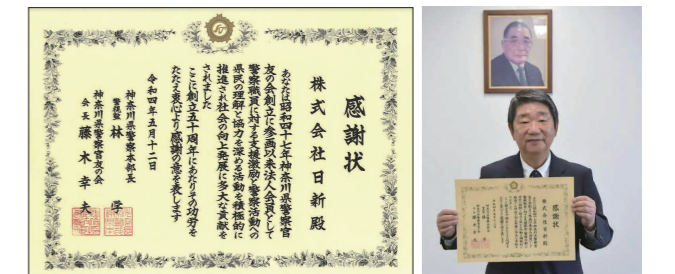 感謝状
株式会社日新殿
あなたは昭和四十七年神奈川県警察官
友の会創立に参画以来法人会員として
警察職員に対する支援激励と警察活動への
県民の理解と協力を深める活動を積極的に
推進され社会の向上発展に多大な貢献を
されました
ここに創立五十周年にあたりその功労を
たたえ衷心より感謝の意を表します
令和四年五月十二日
神奈川県警察本部長
警視監 林 学
神奈川県警察官友の会
会長 藤木幸夫
感謝状
株式会社日新殿